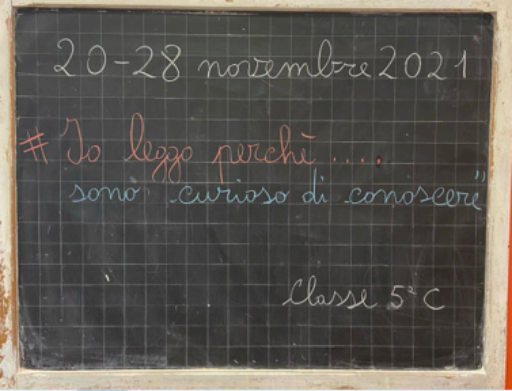 20-28 novembre 2021
# Io leggo perchè ....
sono curioso di conoscere"
Classe 5ª C